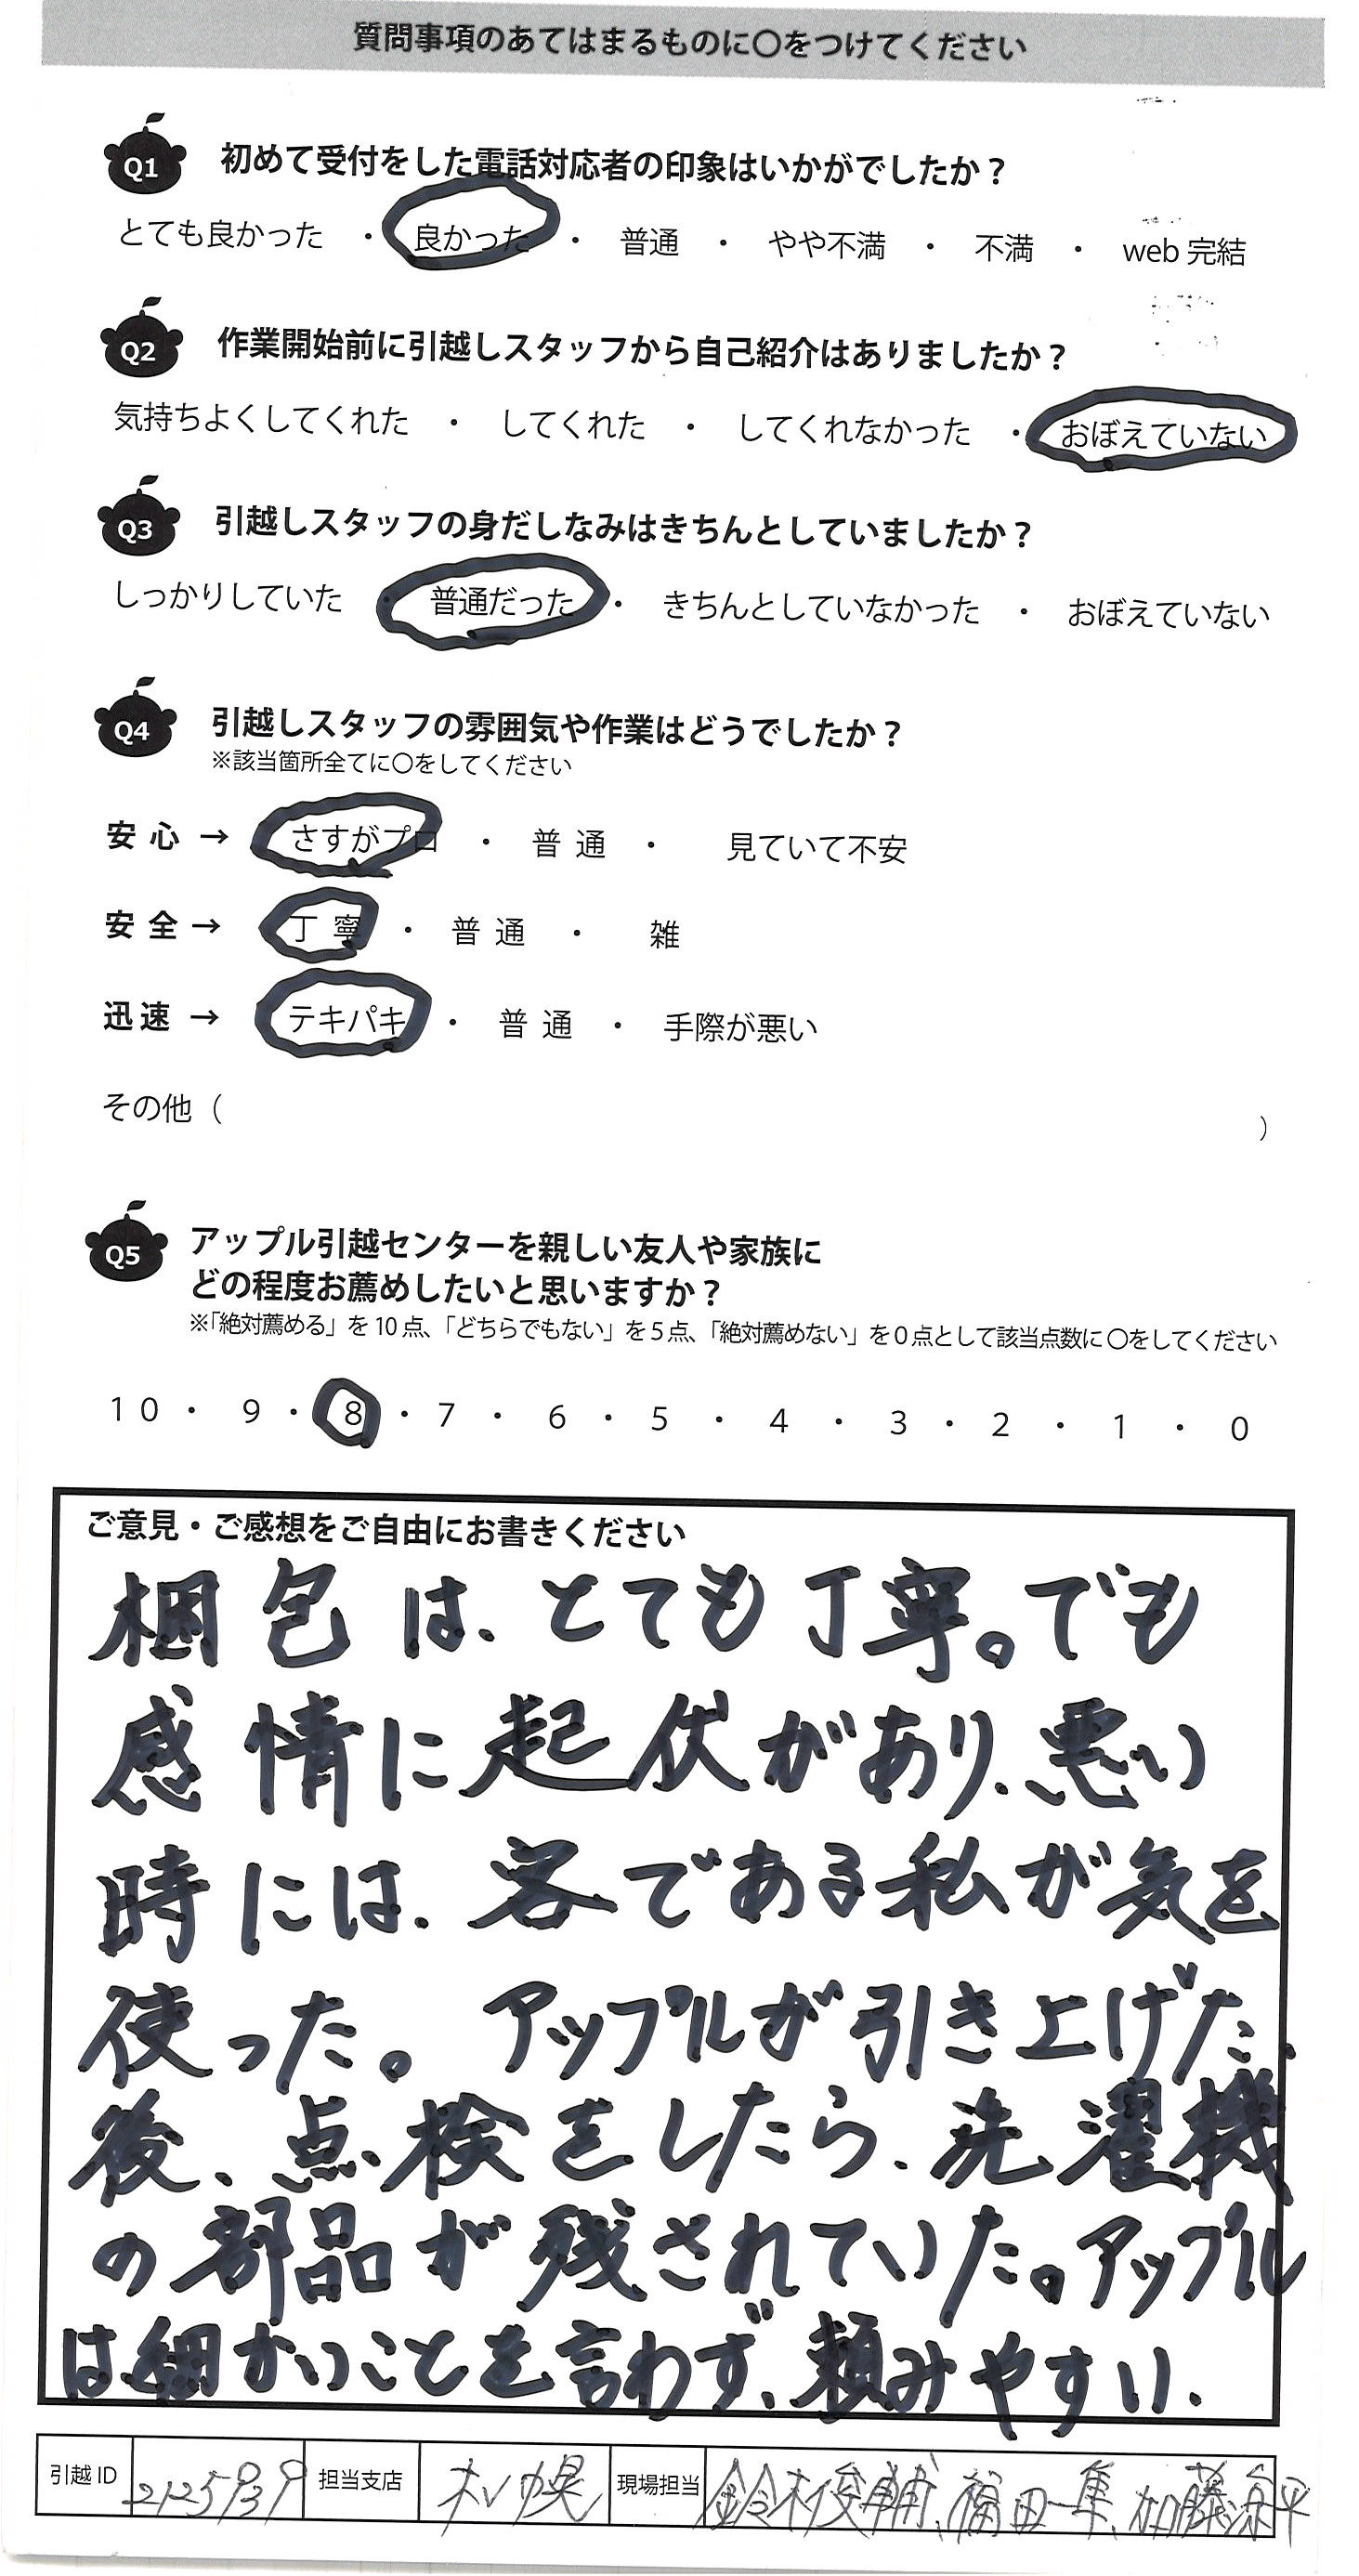 質問事項のあてはまるものに〇をつけてください
Q1 初めて受付をした電話対応者の印象はいかがでしたか？
とても良かった ・ 良かった ・ 普通 ・ やや不満 ・ 不満 ・ web 完結
Q2 作業開始前に引越しスタッフから自己紹介はありましたか？
気持ちよくしてくれた ・ してくれた ・ してくれなかった ・ おぼえていない
Q3 引越しスタッフの身だしなみはきちんとしていましたか？
しっかりしていた ・ 普通だった ・ きちんとしていなかった ・ おぼえていない
Q4 引越しスタッフの雰囲気や作業はどうでしたか？
※該当箇所全てに〇をしてください
安心 → さすがプロ ・ 普通 ・ 見ていて不安
安全 → 丁寧 ・ 普通 ・ 雑
迅速 → テキパキ ・ 普通 ・ 手際が悪い
その他（ ）
Q5 アップル引越センターを親しい友人や家族に
どの程度お薦めしたいと思いますか？
※「絶対薦める」を10点、「どちらでもない」を5点、「絶対薦めない」を0点として該当点数に〇をしてください
10 ・ 9 ・ 8 ・ 7 ・ 6 ・ 5 ・ 4 ・ 3 ・ 2 ・ 1 ・ 0
ご意見・ご感想をご自由にお書きください
梱包は、とても丁寧。でも
感情に起伏があり、悪い
時には、客である私が気を
使った。アップルが引き上げた
後、点検をしたら、洗濯機
の部品が残されていた。アップル
は細かいことを言わず、頼みやすい.
引越ID 2125939 担当支店 札幌 現場担当 鈴木俊輔、福田隼、加藤涼平